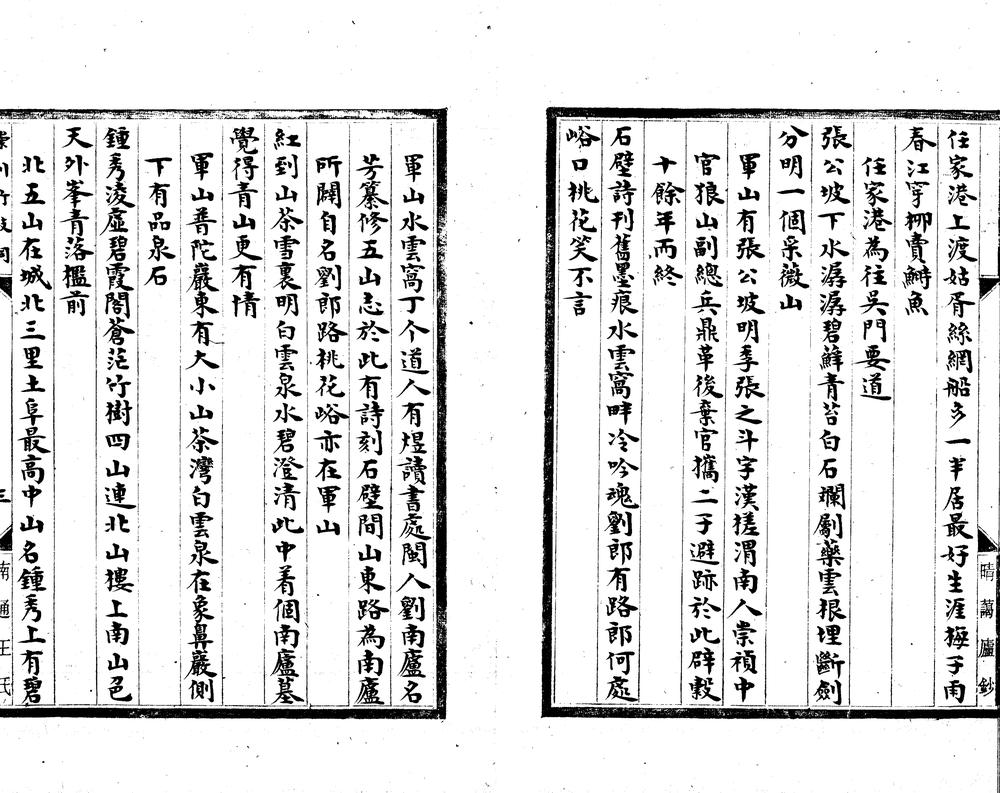 晴藹廬鈔
任家港上渡姑胥絲網船多一半居最好生涯梅子雨
春江穿柳賣鰣魚
任家港為往吳門要道
張公坡下水潺潺碧蘚青苔白石斕劚藥雲根埋斷劍
分明一個采薇山
軍山有張公坡明季張之斗字漢槎渭南人崇禎中
官狼山副總兵鼎革後棄官攜二子避跡於此辟穀
十餘年而終
石壁詩刊舊墨痕水雲窩畔冷吟魂劉郎有路郎何處
峪口桃花笑不言
軍山水雲窩丁个道人有煜讀書處閩人劉南廬名
芳纂修五山志於此有詩刻石壁間山東路為南廬
所闢自名劉郎路桃花峪亦在軍山
紅到山茶雪裏明白雲泉水碧澄清此中着個南廬墓
覺得青山更有情
軍山普陀巖東有大小山茶灣白雲泉在象鼻巖側
下有品泉石
鍾秀凌虛碧霞閣蒼茫竹樹四山連北山樓上南山色
天外峯青落檻前
北五山在城北三里土阜最高中山名鍾秀上有碧
崇川竹枝詞
三
南通王氏